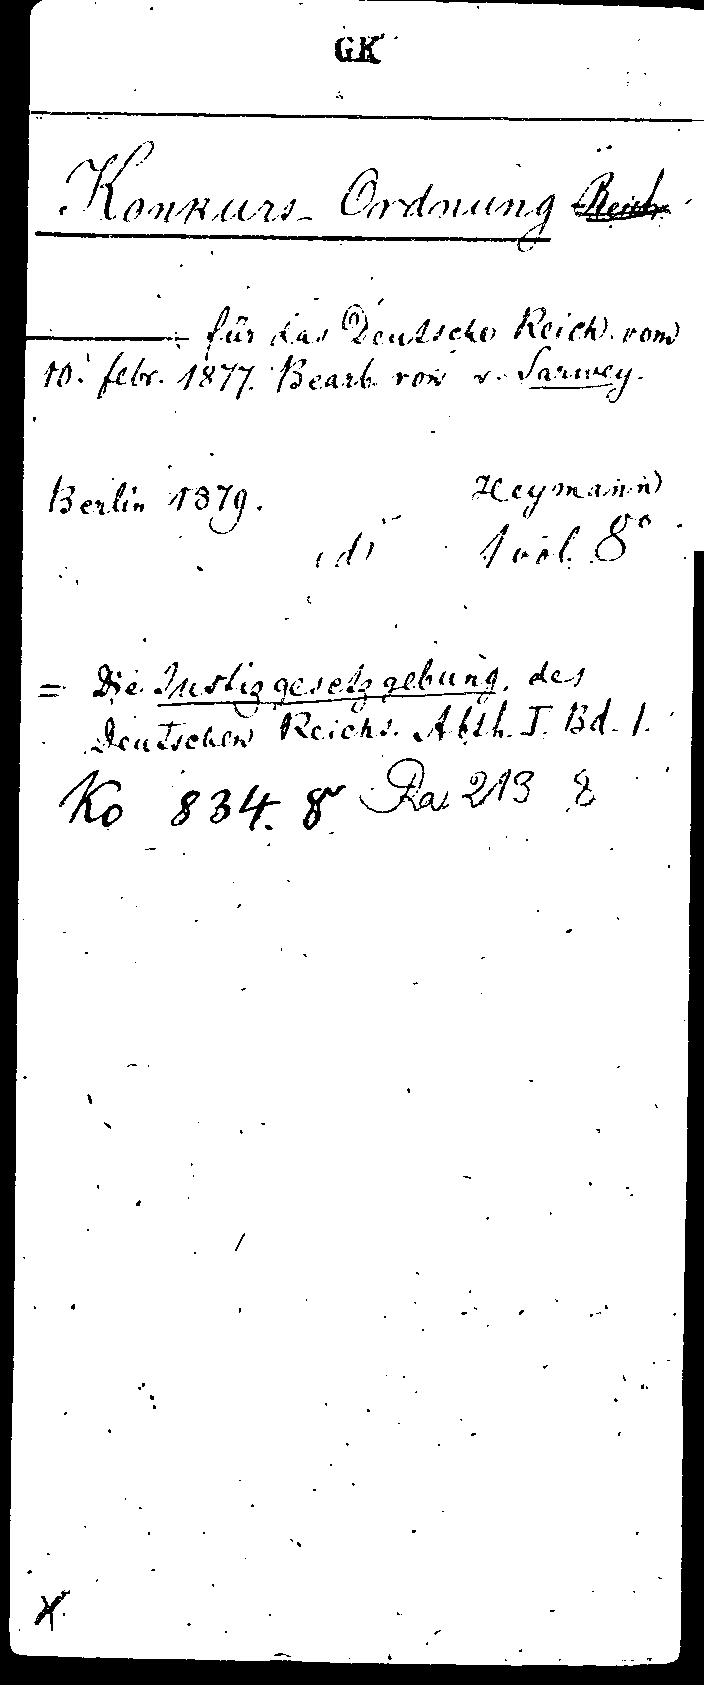 GK
Konkurs-Ordnung Reich
——— für das Deutsche Reich vom
10. febr. 1877. Bearb. von v. Sarwey.
Berlin 1879. Heymann
(d) 1 vol. 8°
= Die Justizgesetzgebung des
Deutschen Reichs. Abth. I. Bd. 1.
Ko 834. 8° Ra 213 8